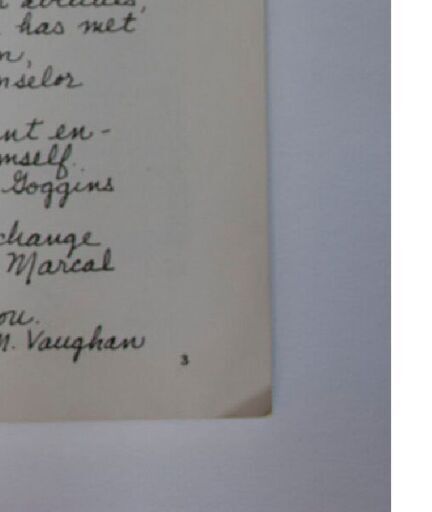 has met
nselor
nt en-
mself.
Goggins
change
Marcal
ou.
M. Vaughan
3